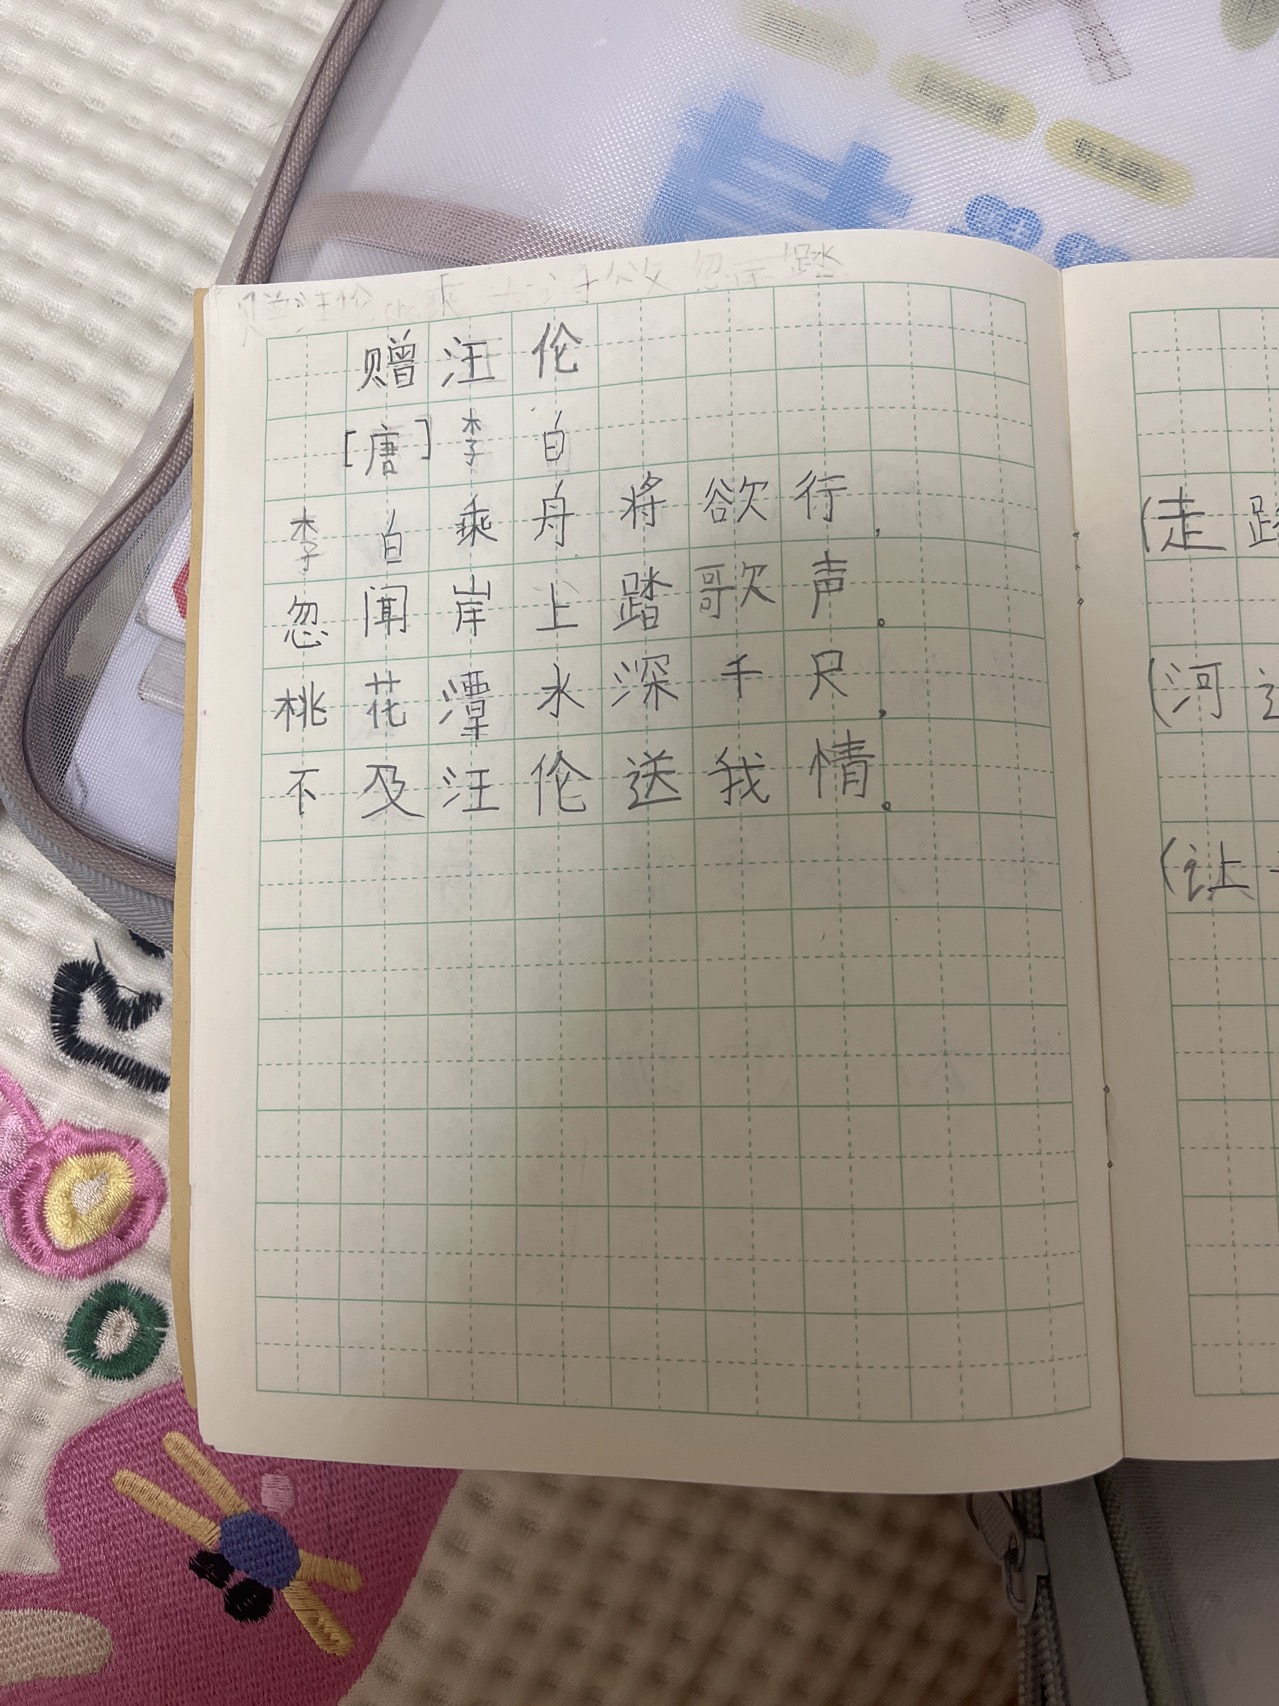 赠汪伦
[唐]李白
李白乘舟将欲行,
忽闻岸上踏歌声。
桃花潭水深千尺,
不及汪伦送我情。
(走
(河
(让